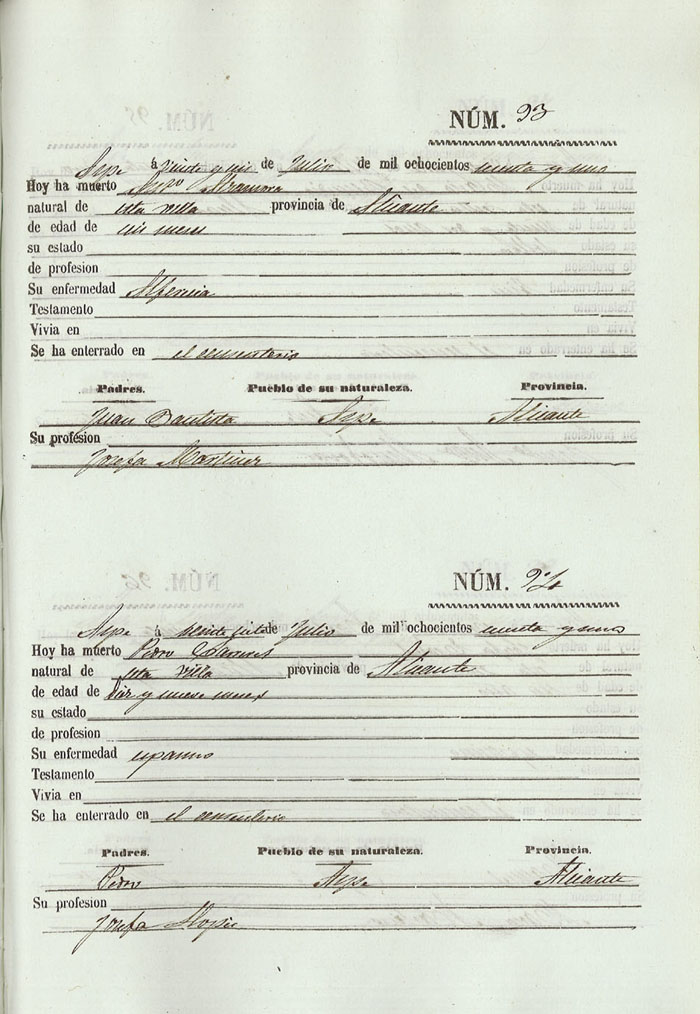 NÚM. 93
Aspe á veinte y seis de Julio de mil ochocientos sesenta y uno
Hoy ha muerto
natural de esta villa provincia de Alicante
de edad de seis meses
su estado
de profesion
Su enfermedad Alferecia
Testamento
Vivia en
Se ha enterrado en el cementerio
Padres. Pueblo de su naturaleza. Provincia.
Juan Bautista Aspe Alicante
Su profesion
Josefa Martinez
NÚM. 94
Aspe á veinte siete de Julio de mil ochocientos sesenta y uno
Hoy ha muerto Pedro
natural de esta villa provincia de Alicante
de edad de diez y nueve meses
su estado
de profesion
Su enfermedad espasmo
Testamento
Vivia en
Se ha enterrado en el cementerio
Padres. Pueblo de su naturaleza. Provincia.
Pedro Aspe Alicante
Su profesion
Josefa